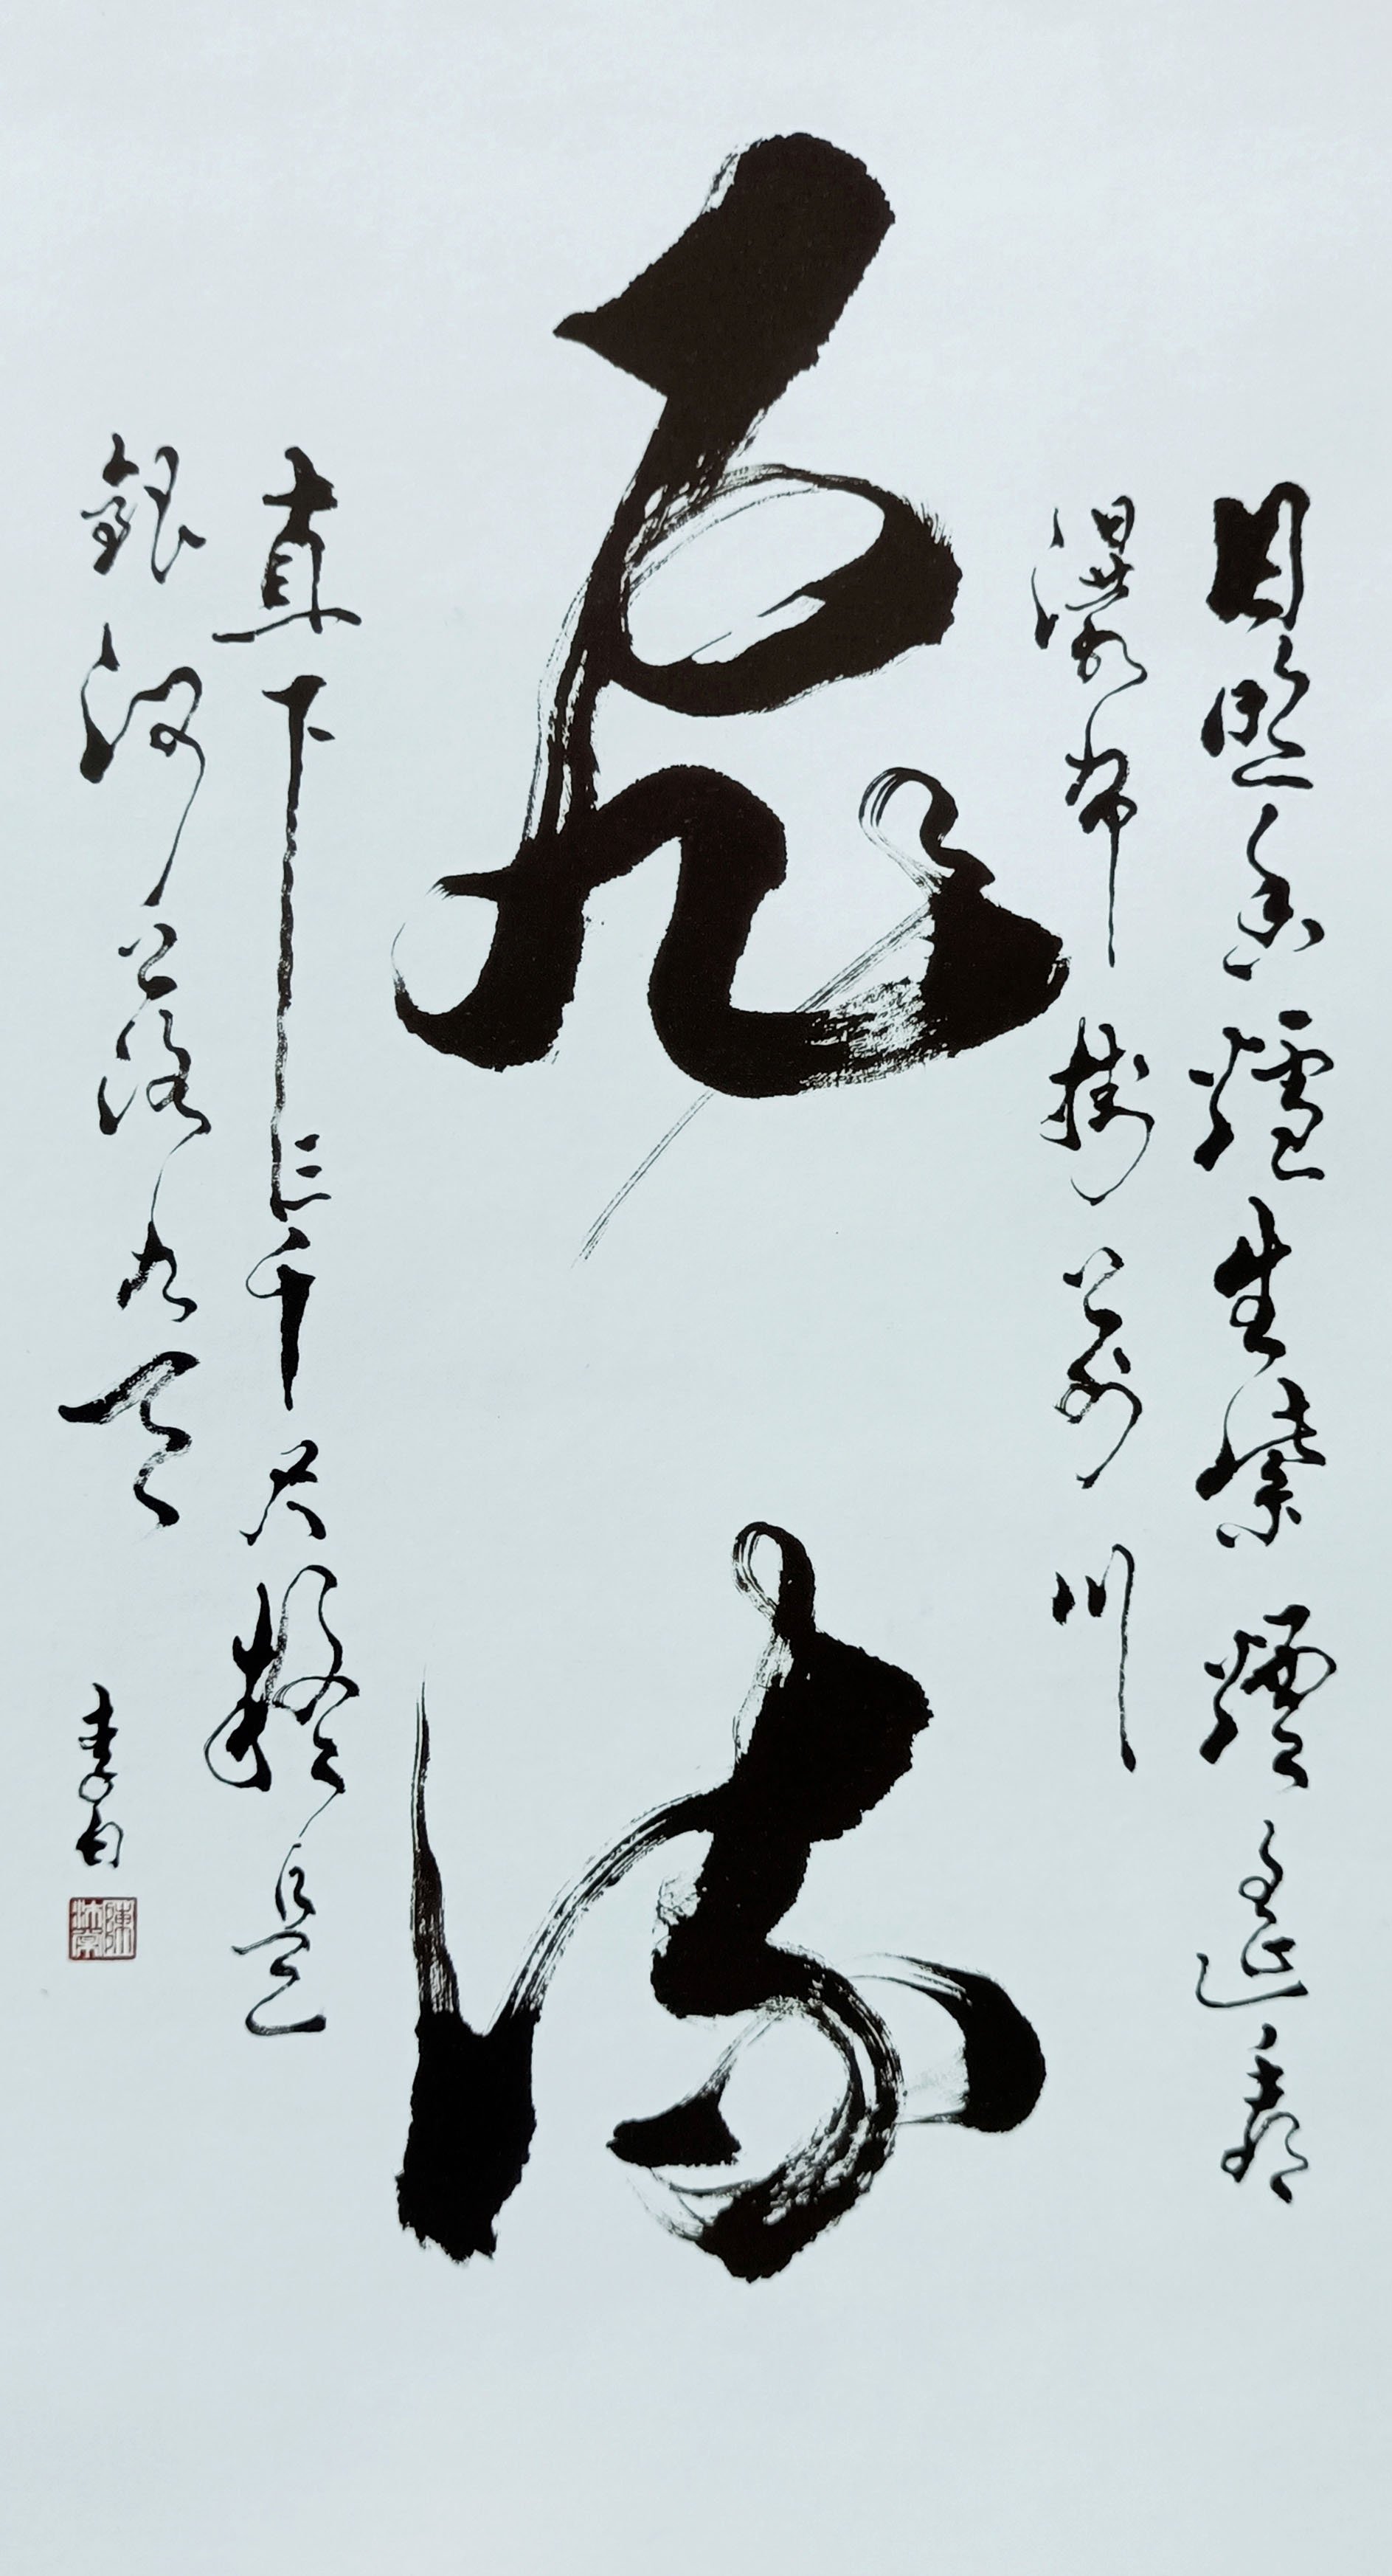 日照香爐生紫煙遙看
瀑布掛前川
飛流
直下三千尺疑是
銀河落九天
李白